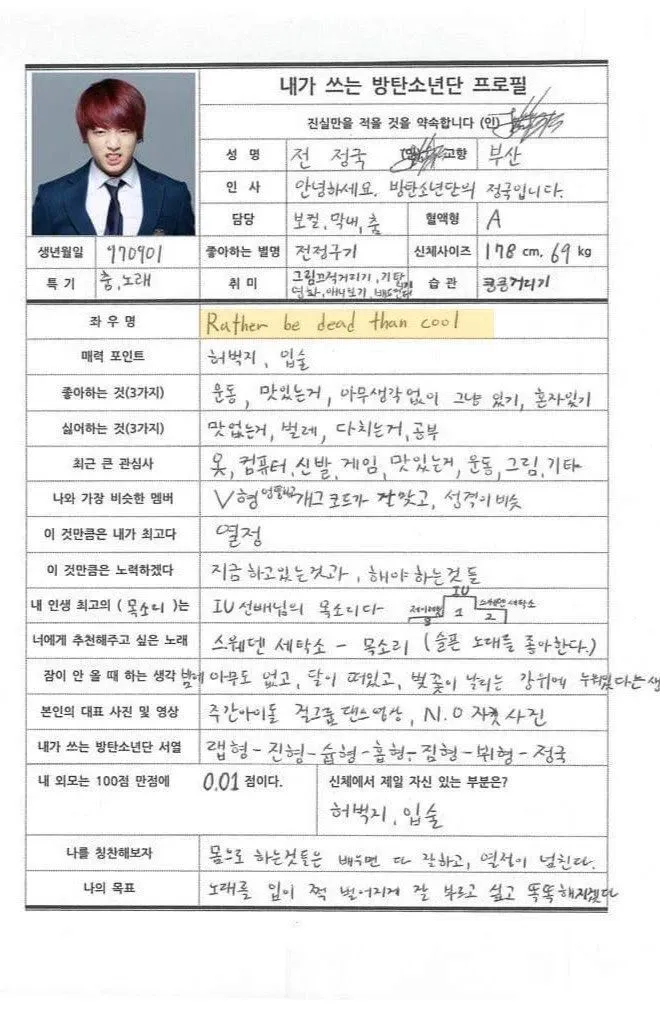 내가 쓰는 방탄소년단 프로필
진실만을 적을 것을 약속합니다 (인)
성 명 전 정국 고향 부산
인 사 안녕하세요. 방탄소년단의 정국입니다.
담당 보컬, 막내, 춤 혈액형 A
생년월일 970901 좋아하는 별명 전정구기 신체사이즈 178 cm, 69 kg
특 기 춤, 노래 취미 그림끄적거리기, 기타
영화, 애니보기, 습관 킁킁거리기
좌 우 명 Rather be dead than cool
매력 포인트 허벅지, 입술
좋아하는 것(3가지) 운동, 맛있는거, 아무생각없이 그냥 있기, 혼자있기
싫어하는 것(3가지) 맛없는거, 벌레, 다치는거, 공부
최근 큰 관심사 옷, 컴퓨터, 신발, 게임, 맛있는거, 운동, 그림, 기타
나와 가장 비슷한 멤버 V형 개그 코드가 잘맞고, 성격이 비슷
이 것만큼은 내가 최고다 열정
이 것만큼은 노력하겠다 지금 하고있는것과, 해야 하는것들
내 인생 최고의 (목소리)는 IU선배님의 목소리다 IU 1 스웨덴세탁소 2 3
너에게 추천해주고 싶은 노래 스웨덴 세탁소 - 목소리 (슬픈 노래를 좋아한다.)
잠이 안 올 때 하는 생각 밤에 아무도 없고, 달이 떠있고, 벚꽃이 날리는 강위에 누워있다는생
본인의 대표 사진 및 영상 주간아이돌 걸그룹댄스영상, N.O 자켓 사진
내가 쓰는 방탄소년단 서열 랩형-진형-슙형-홉형-짐형-뷔형-정국
내 외모는 100점 만점에 0.01 점이다. 신체에서 제일 자신 있는 부분은?
허벅지, 입술
나를 칭찬해보자 몸으로 하는것들은 배우면 다 잘하고, 열정이 넘친다.
나의 목표 노래를 입이 쩍 벌어지게 잘 부르고 싶고 똑똑해지겠다